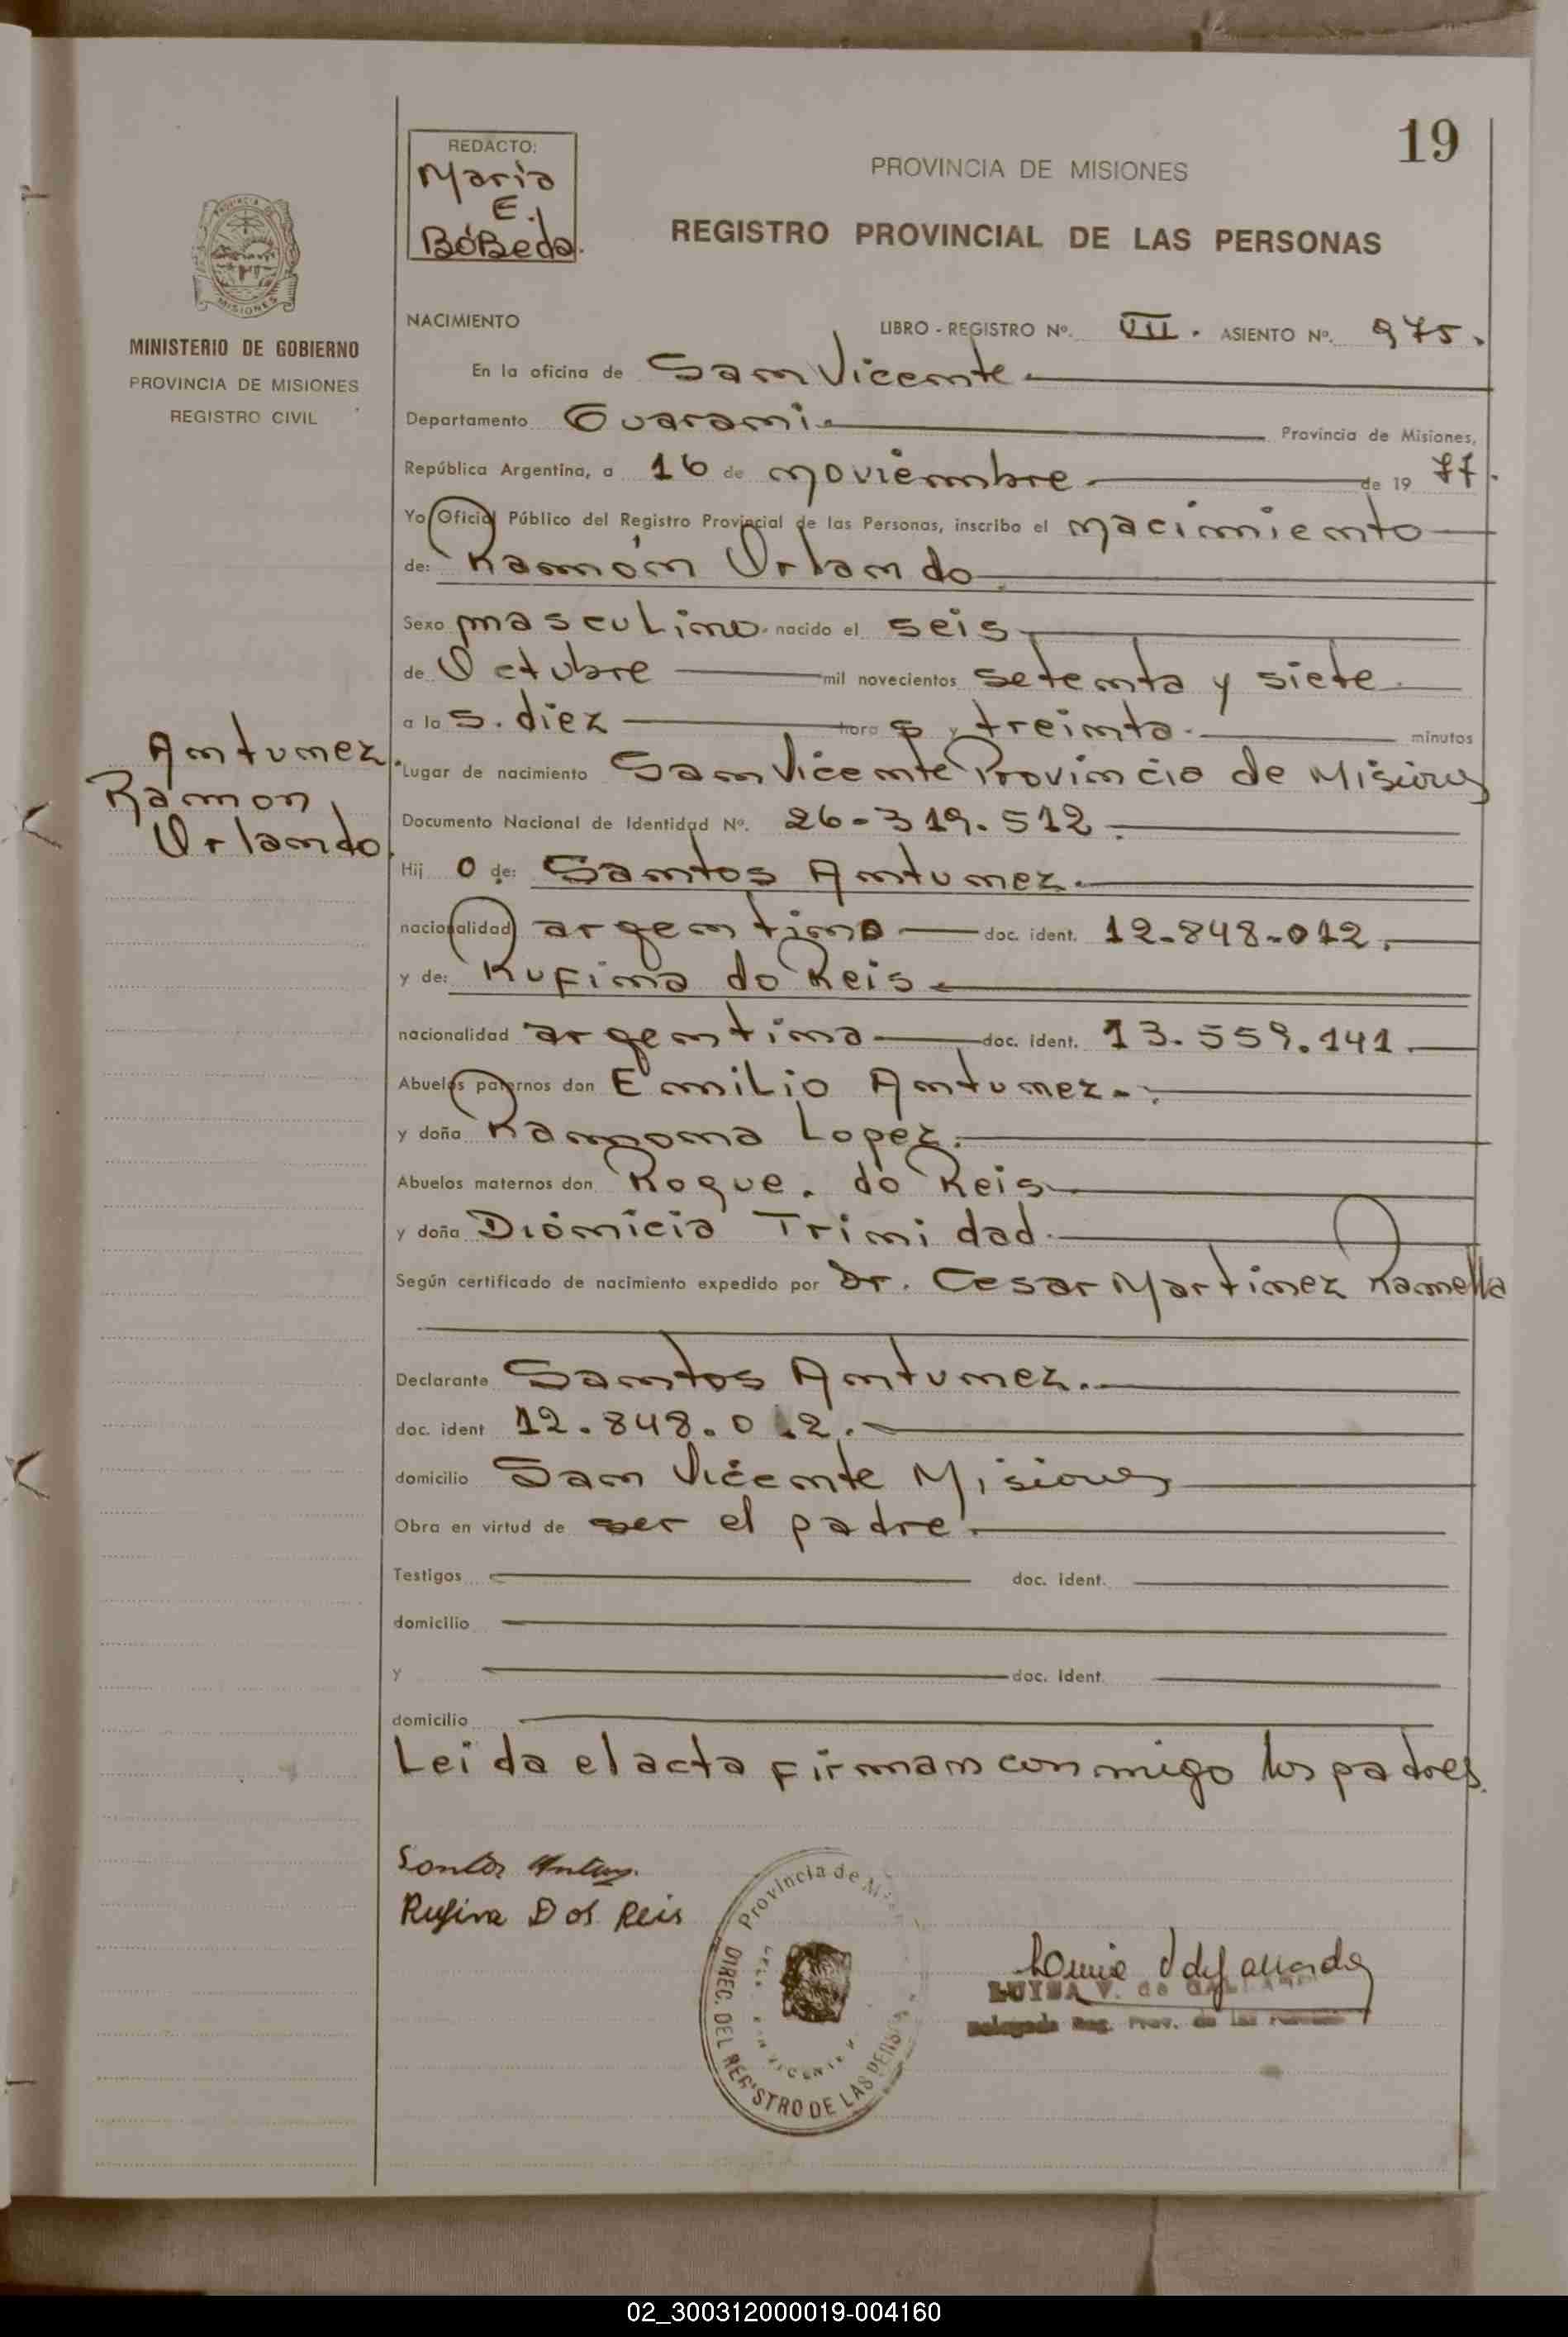 19
REDACTO:
Maria
E.
BóBeda.
PROVINCIA DE MISIONES
REGISTRO PROVINCIAL DE LAS PERSONAS
MISIONES
MINISTERIO DE GOBIERNO
PROVINCIA DE MISIONES
REGISTRO CIVIL
NACIMIENTO LIBRO - REGISTRO Nº. VII. ASIENTO Nº. 975.
En la oficina de San Vicente
Departamento Guarani Provincia de Misiones,
República Argentina, a 16 de noviembre de 19 77.
Yo Oficial Público del Registro Provincial de las Personas, inscribo el nacimiento
de: Ramón Orlando
Sexo masculino. nacido el seis
de Octubre mil novecientos setenta y siete
a la s. diez hora s y treinta minutos
Antunez
Ramon
Orlando.
Lugar de nacimiento San Vicente Provincia de Misiones
Documento Nacional de Identidad Nº. 26-319.512
Hij o de: Santos Antunez.
nacionalidad argentino doc. ident. 12.848.012.
y de: Rufina do Reis
nacionalidad argentina doc. ident. 13.559.141
Abuelos paternos don Emilio Antunez.
y doña Ramona Lopez.
Abuelos maternos don Roque. do Reis
y doña Diónicia Trinidad.
Según certificado de nacimiento expedido por Dr. Cesar Martinez Ramella
Declarante Santos Antunez.
doc. ident 12.848.012.
domicilio San Vicente Misiones
Obra en virtud de ser el padre.
Testigos doc. ident.
domicilio
y doc. ident.
domicilio
Leida el acta firman conmigo los padres.
Santos
Rufina Dos Reis
Provincia de
DIREC. DEL REGISTRO DE LAS PERSONAS
LUISA V. de
Delegada Reg. Prov. de las
02_300312000019-004160